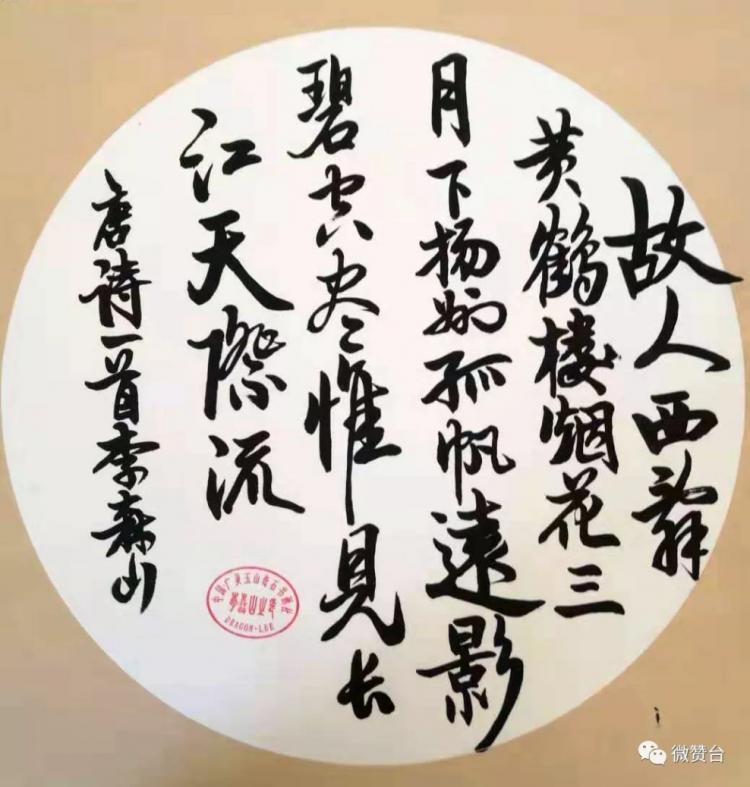 故人西辭
黄鶴楼烟花三
月下揚州孤帆遠影
碧空尽惟見长
江天際流
唐诗一首李森山
DRAGON-LEE
微赞台